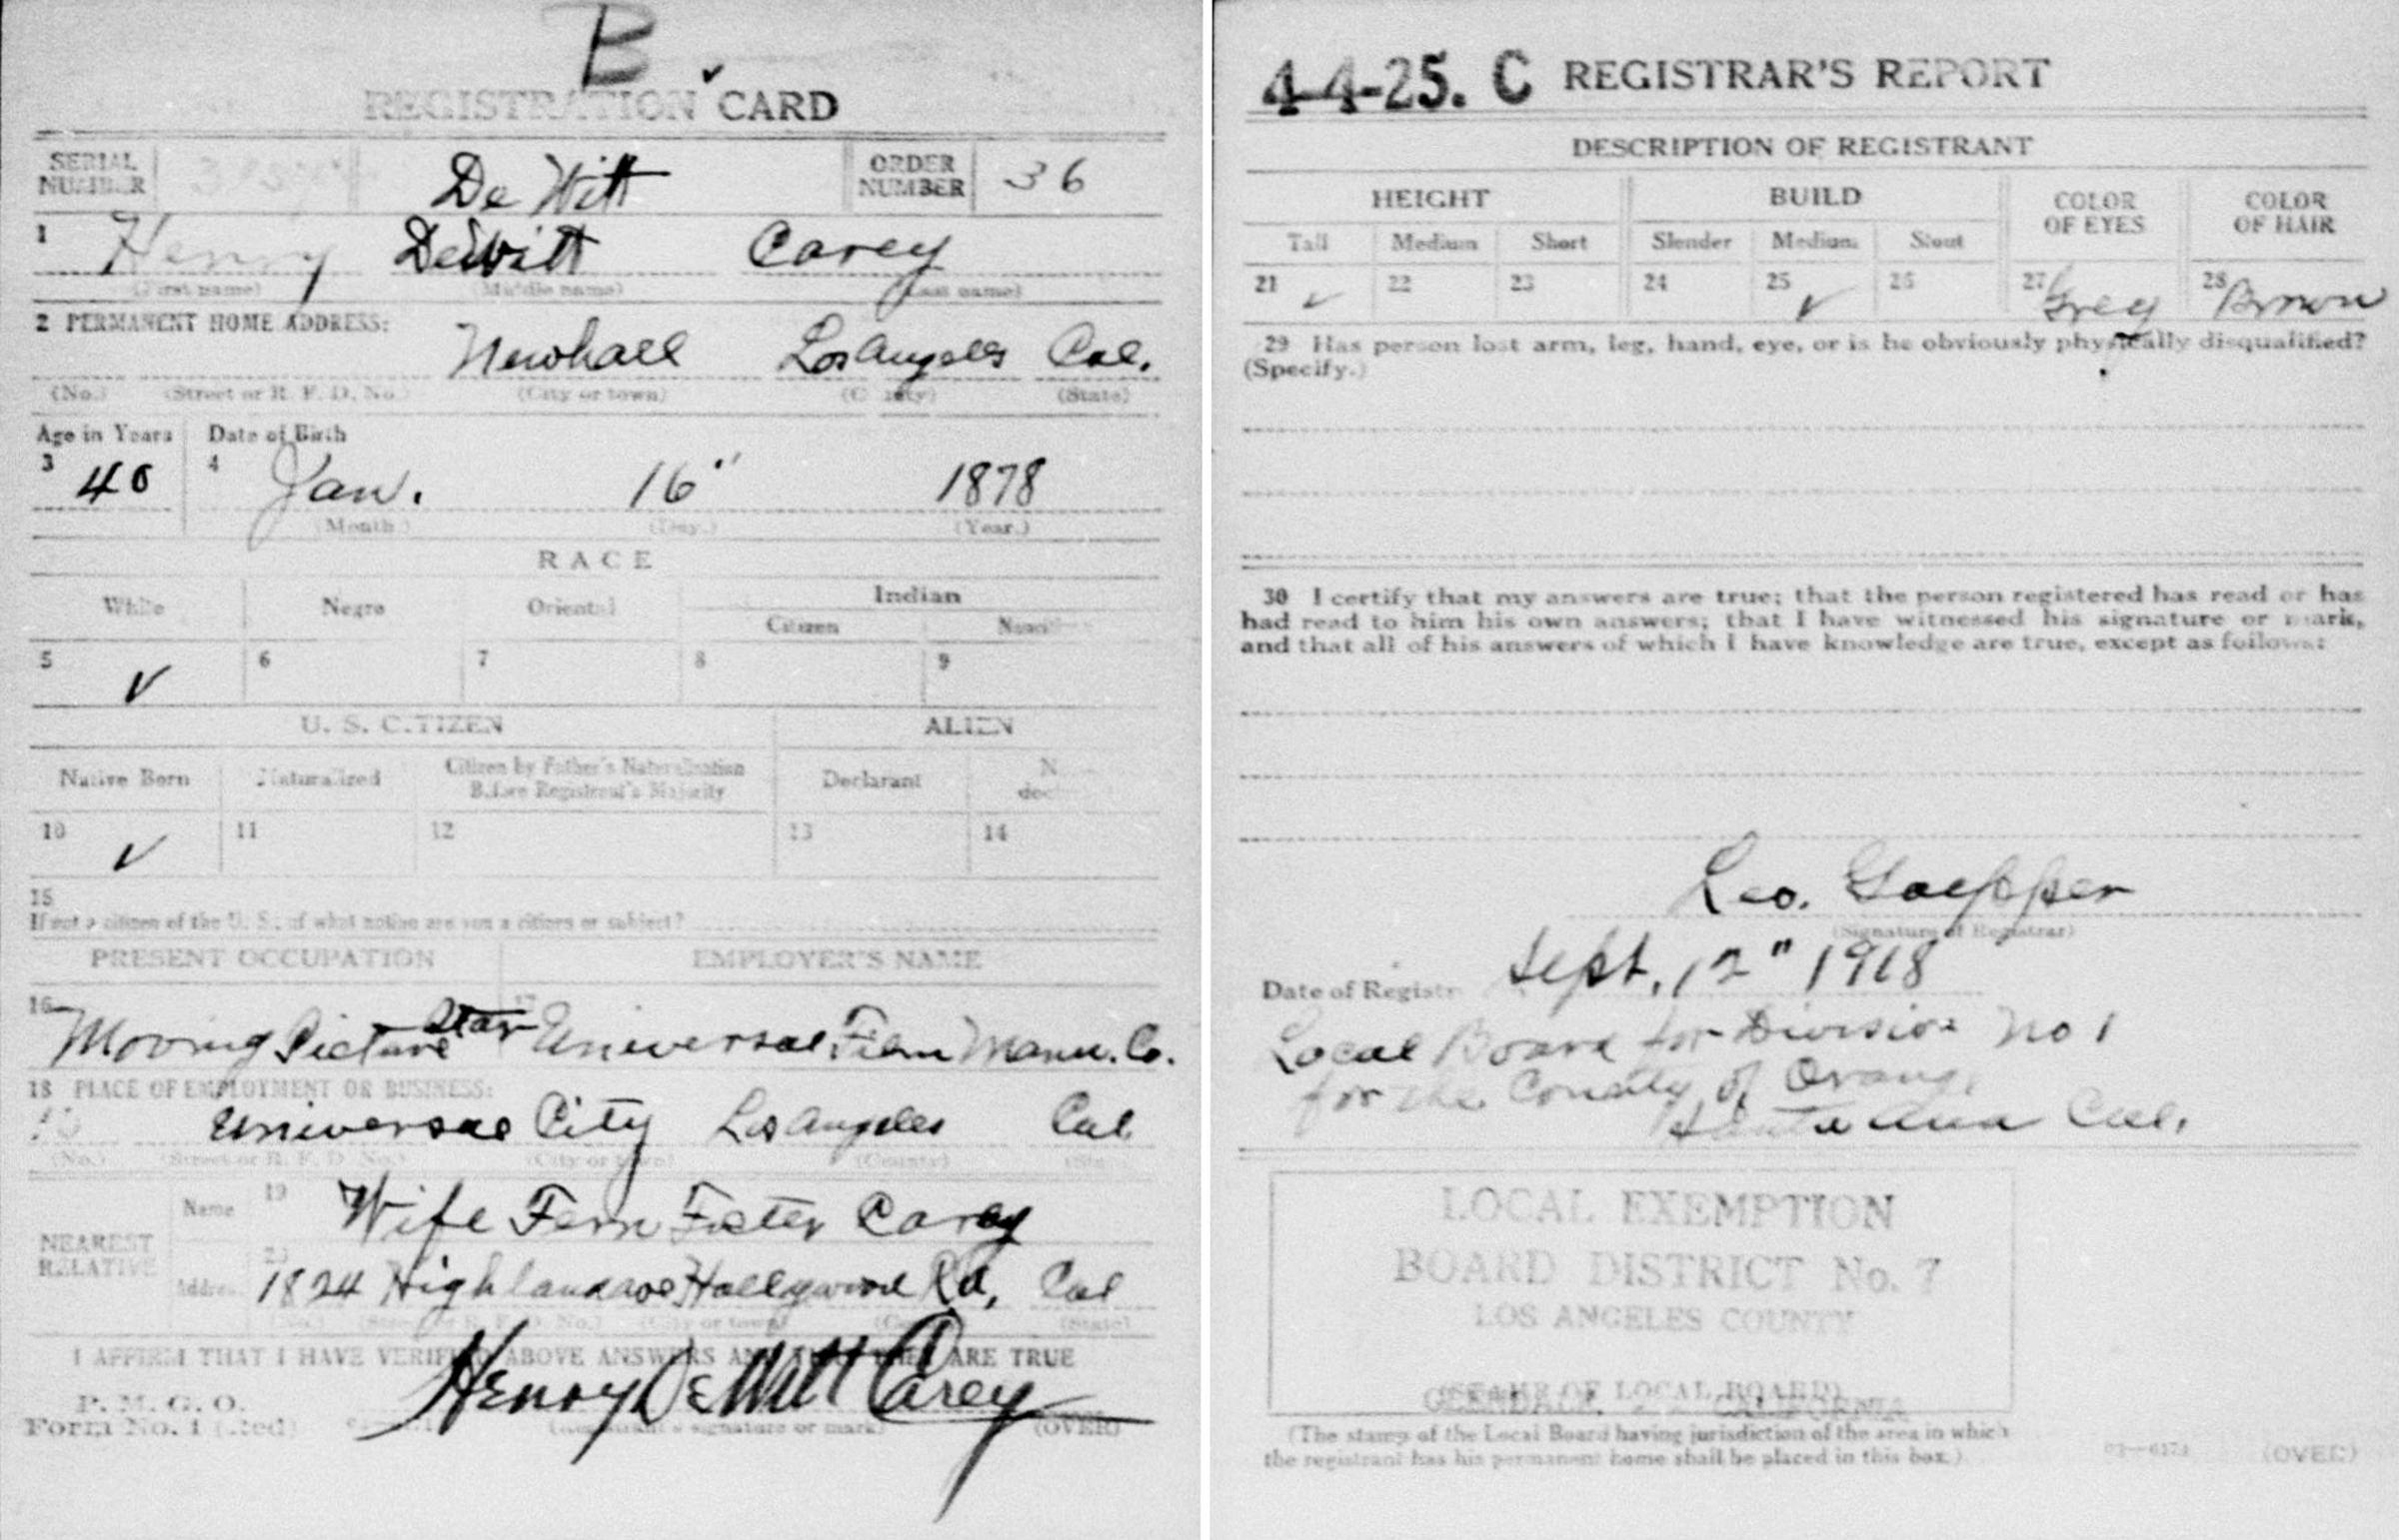 B
REGISTRATION CARD
SERIAL NUMBER
De Witt
ORDER NUMBER 36
1 Henry DeWitt Carey
(First name) (Middle name) (Last name)
2 PERMANENT HOME ADDRESS:
Newhall Los Angeles Cal.
(No.) (Street or R. F. D. No.) (City or town) (County) (State)
Age in Years Date of Birth
3 40 4 Jan. 16" 1878
(Month.) (Day.) (Year.)
RACE
White Negro Oriental Indian
Citizen
5 ✓ 6 7 8 9
U. S. CITIZEN ALIEN
Native Born Naturalized Citizen by Father's Naturalization Before Registrant's Majority Declarant
10 ✓ 11 12 13 14
15
If not a citizen of the U. S., of what nation are you a citizen or subject?
PRESENT OCCUPATION EMPLOYER'S NAME
16 Moving Picture Star 17 Universal Film Manu. Co.
18 PLACE OF EMPLOYMENT OR BUSINESS:
Universal City Los Angeles Cal
(No.) (Street or R. F. D. No.) (City or town) (County)
NEAREST RELATIVE
Name 19 Wife Fern Foster Carey
Address 1824 Highland ave Hollywood Cal
(No.) (Street or R. F. D. No.) (City or town) (State)
I AFFIRM THAT I HAVE VERIFIED ABOVE ANSWERS AND THAT THEY ARE TRUE
P. M. G. O.
Form No. 1 (Red)
Henry DeWitt Carey
(Registrant's signature or mark) (OVER)
4-4-25. C REGISTRAR'S REPORT
DESCRIPTION OF REGISTRANT
HEIGHT BUILD COLOR OF EYES COLOR OF HAIR
Tall Medium Short Slender Medium Stout
21 ✓ 22 23 24 25 ✓ 26 27 Grey 28 Brown
29 Has person lost arm, leg, hand, eye, or is he obviously physically disqualified?
(Specify.)
30 I certify that my answers are true; that the person registered has read or has
had read to him his own answers; that I have witnessed his signature or mark,
and that all of his answers of which I have knowledge are true, except as follows:
Leo. Goepper
(Signature of Registrar)
Date of Registr Sept. 12" 1918
Local Board for Division No 1
for the County of Orange
Santa Ana Cal.
LOCAL EXEMPTION
BOARD DISTRICT No. 7
LOS ANGELES COUNTY
(STAMP OF LOCAL BOARD)
GLENDALE CALIFORNIA
(The stamp of the Local Board having jurisdiction of the area in which
the registrant has his permanent home shall be placed in this box.)
03—6174 (OVER)